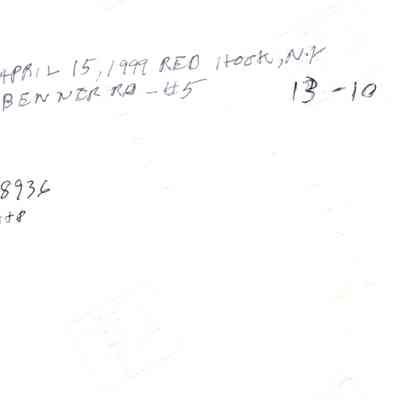 APRIL 15, 1999 RED HOOK, N.Y
BENNER RD - #5 13-10
8936
#8